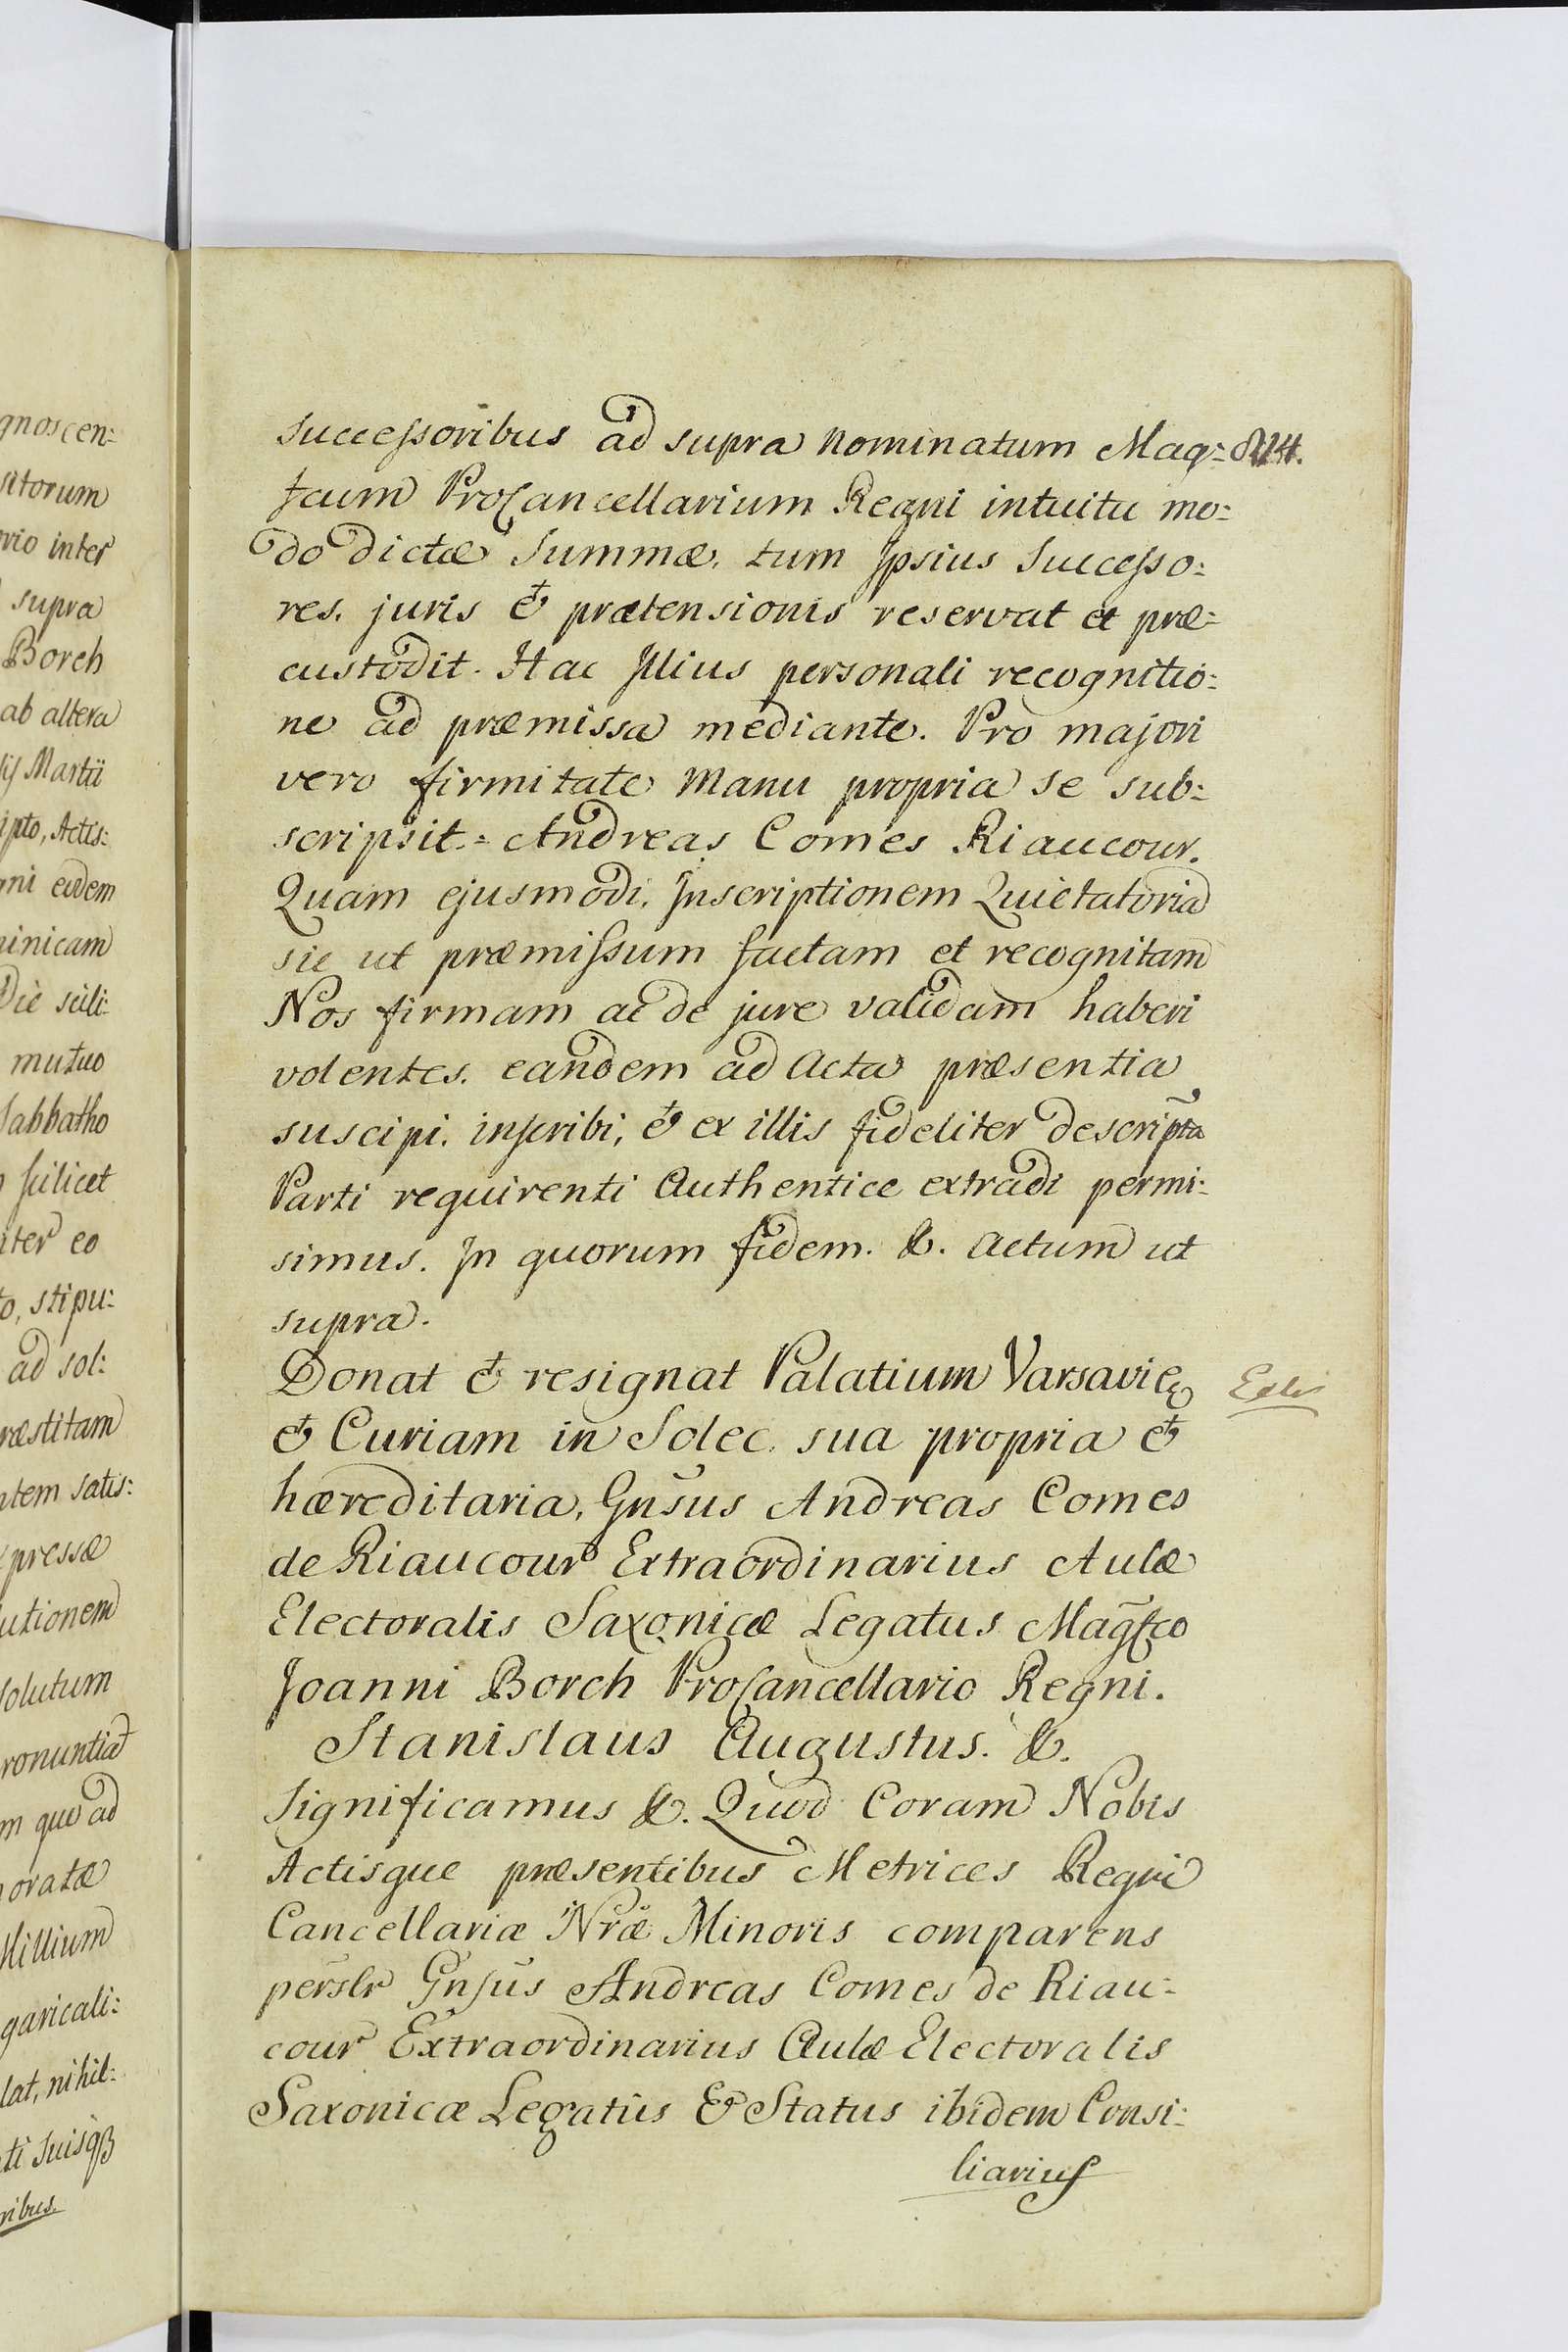 gnoscen:
sitorum
vio inter
supra
Borch
ab altera
Martii
ipto, Actis:
eodem
inicam
Die scili:
mutuo
Sabbatho
scilicet
iter eo
to, stipu:
ad sol:
ræstitam
ntem satis:
pressæ
utionem
solutum
ronuntiat
m quo ad
oratæ
Millium
garicali:
lat, nihil:
ti suisq3
ribus.
successoribus ad supra nominatum Mag:
fcum ProCancellarium Regni intuitu mo:
do dictæ Summæ, tum Ipsius Successo:
res, juris & prætensionis reservat et præ:
custodit. Hac Illius personali recognitio:
ne ad præmissa mediante. Pro majori
vero firmitate Manu propria se sub:
scripsit.= Andreas Comes Riaucour.
Quam ejusmodi, Inscriptionem Quietatoria
sic ut præmissum factam et recognitam
Nos firmam ac de jure validam haberi
volentes, eandem ad Acta præsentia
suscipi, inscribi, & ex illis fideliter descripta
Parti requirenti Authentice extradi permi:
simus. In quorum fidem. &. Actum ut
supra.
Donat & resignat Palatium Varsaviæ
& Curiam in Solec, sua propria &
hæreditaria, Gnsus Andreas Comes
de Riaucour Extraordinarius Aulæ
Electoralis Saxonicæ Legatus Magfco
Joanni Borch ProCancellario Regni.
Stanislaus Augustus. &.
Significamus &. Quod Coram Nobis
Actisque præsentibus Metrices Regni
Cancellariæ Nræ Minoris comparens
perslr Gnsus Andreas Comes de Riau:
cour Extraordinarius Aulæ Electoralis
Saxonicæ Legatus & Status ibidem Consi:
liarius